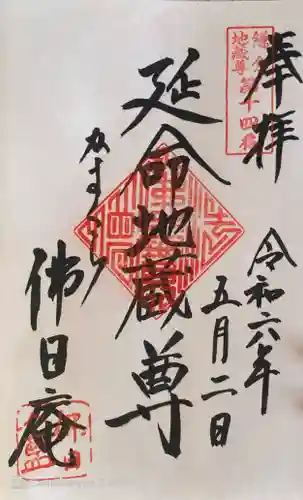 奉拝
鎌倉
地蔵尊第十四番
令和六年
五月二日
延命地蔵尊
かまくら
佛日庵